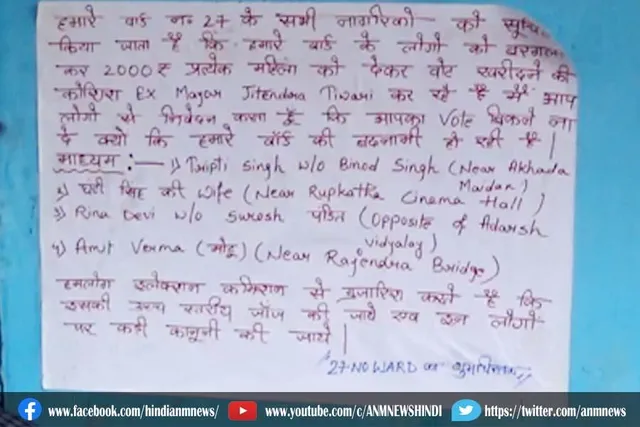 हमारे वार्ड न० 27 के सभी नागरिको को
किया जाता है कि हमारे वार्ड के लोगो को बरगला
कर 2000₹ प्रत्येक महिला को देकर वोट खरीदने की
कोशिश EX Mayor Jitendra Tiwari कर रहे है मैं आप
लोगो से निवेदन करता हूँ कि आपका Vote बिकने ना
दे क्यो कि हमारे वॉर्ड की बदनामी हो रही है|
माध्यम :— 1) Tripti Singh w/o Binod Singh (Near Akhada
Maidan)
2) सिंह की wife (Near Rupkatha Cinema Hall)
3) Rina Devi w/o Suresh पंडित (Opposite of Adarsh
vidyalay)
4) Amit Verma (मोटू) (Near Rajendra Bridge)
हमलोग इलेक्शन कमिशन से गुजारिश करते है कि
इसकी उच्च स्तरीय जाँच की जाये एवं इन लोगो
पर कड़ी कानूनी की जाये|
27 NO WARD का शुभचिंतक
www.facebook.com/hindianmnews/
www.youtube.com/c/ANMNEWSHINDI
https://twitter.com/anmnews